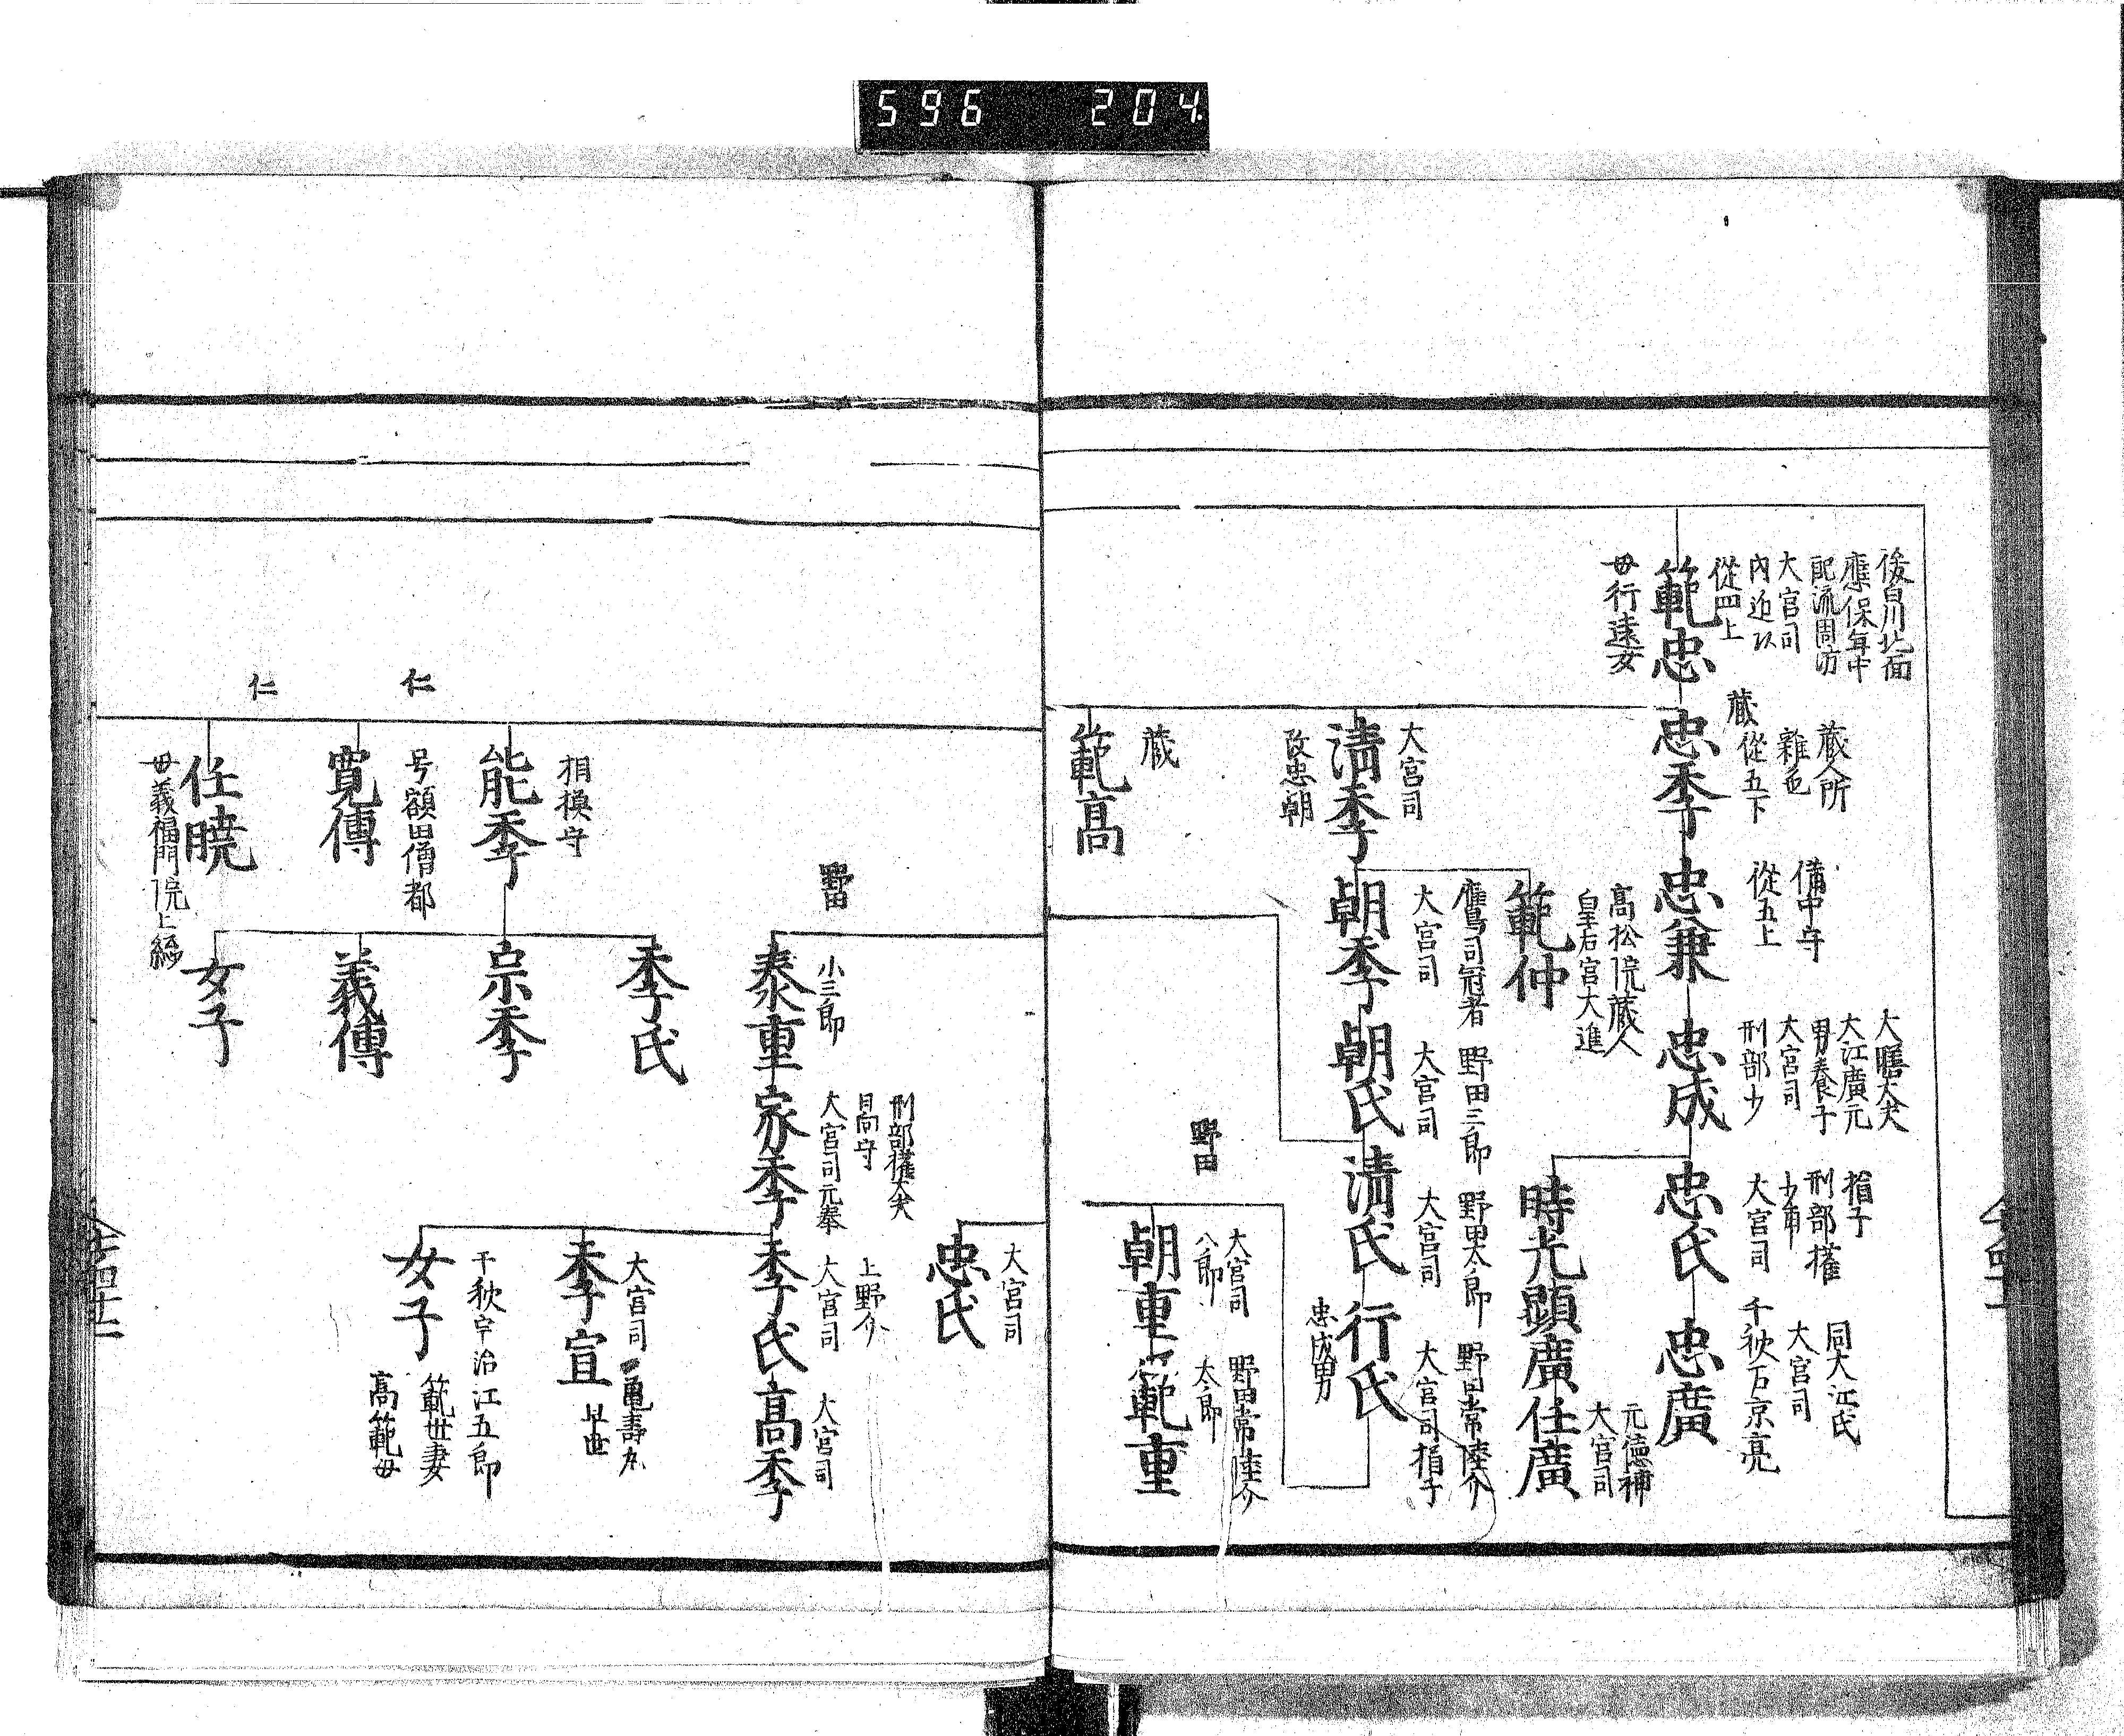 596 204
後白川北面
應保年中
配流周防
大宮司
內迊以
從四上
範忠
母行遠女
蔵人所
雜色
蔵從五下
忠季
備中守
從五上
忠兼
大膳大夫
大江廣元
男養子
大宮司
刑部少
忠成
猶子
刑部權
少甫
大宮司
忠氏
同大江氏
大宮司
千秋右京亮
忠廣
時光
顕廣
元德補
大宮司
任廣
大宮司
清季
改忠朝
高松院蔵人
皇右宮大進
範仲
鷹司冠者
大宮司
朝季
野田三郎
大宮司
朝氏
野田太郎
大宮司
清氏
野田常陸介
大宮司猶子
行氏
忠成男
蔵
範高
野田
大宮司
八郎
朝重
野田常陸介
太郎
範重
大宮司
忠氏
野田
小三郎
泰重
刑部權大夫
日向守
大宮司元奉
家季
上野介
大宮司
季氏
大宮司
高季
大宮司
亀壽丸
季宣
早世
千秋宇治江五郎
範世妻
高範母
女子
相模守
能季
季氏
宗季
義傳
女子
仁
号額田僧都
寛傳
仁
任曉
母義福門院上総